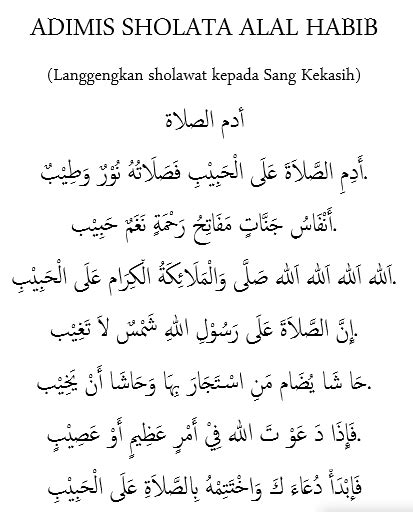 ADIMIS SHOLATA ALAL HABIB
(Langgengkan sholawat kepada Sang Kekasih)
أدم الصلاة
.أَدِمِ الصَّلاَةَ عَلَى الْحَبِيْبِ فَصَلَاتُهُ نُوْرٌ وَطِيْبٌ
.أَنْفَاسُ جَنَّاتٍ مَفَاتِحُ رَحْمَةٍ نَغَمٌ حَبِيْب
.اَللّٰه اَللّٰه اَللّٰه اَللّٰه صَلَّى وَالْمَلَائِكَةُ الْكِرَام عَلَى الْحَبِيْبِ
.إِنَّ الصَّلاَةَ عَلَى رَسُوْلِ اللهِ شَمْسٌ لاَ تَغِيْب
.حَا شَا يُضَام مَنِ اسْتَجَارَ بِهَا وَحَاشَا أَنْ يَخِيْب
.فَإِذَا دَ عَوْ تَ الله فِيْ أَمْرٍ عَظِيمٍ أَوْ عَصِيْبٍ
فَإبْدَأْ دُعَاءَ كَ وَاخْتَتِمْهُ بِالصَّلاَةِ عَلَى الْحَبِيْبِ